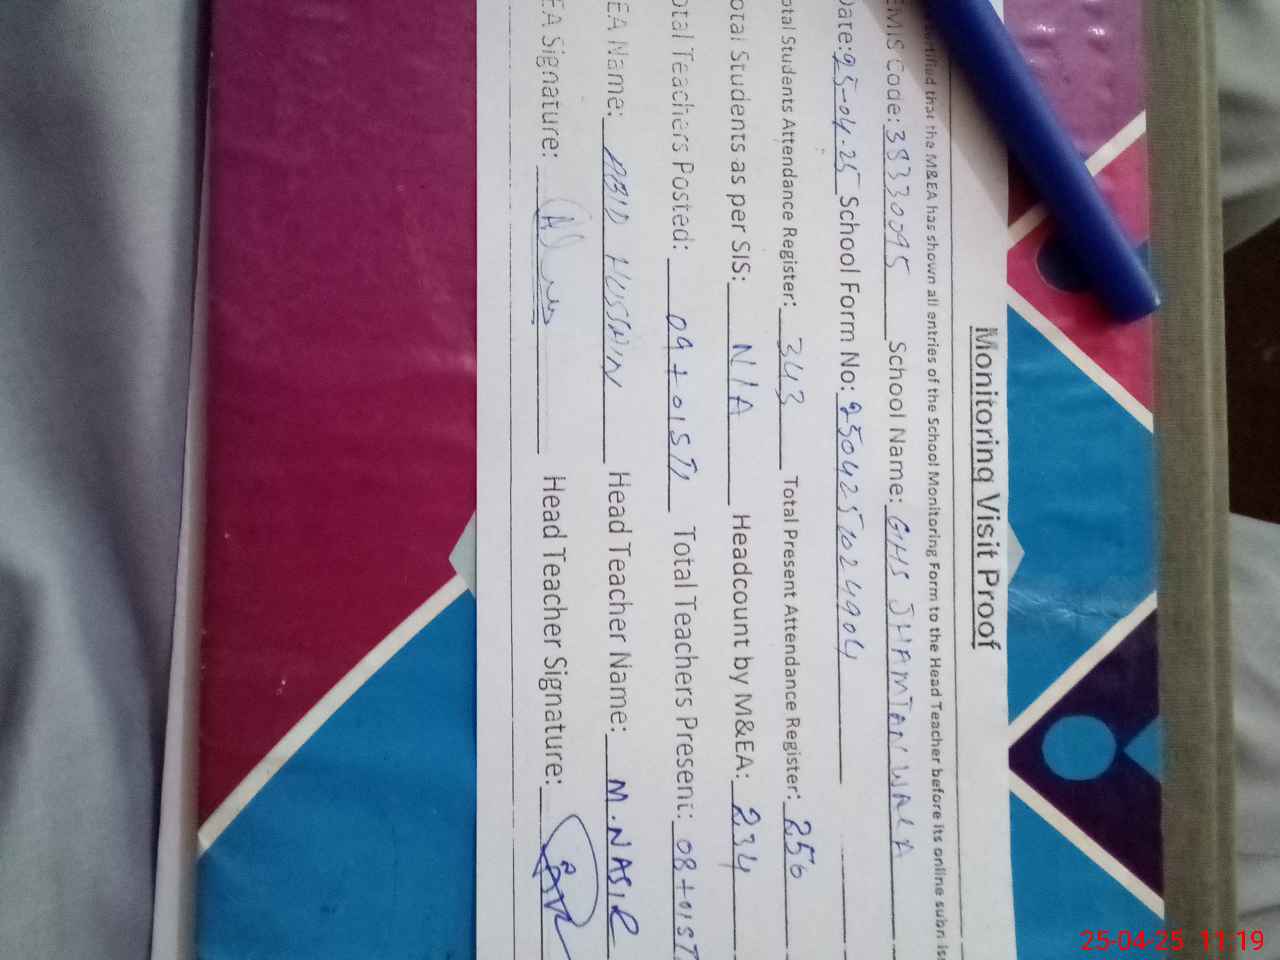 Monitoring Visit Proof
ertified that the M&EA has shown all entries of the School Monitoring Form to the Head Teacher before its online subm iss
EMIS Code: 38330095 School Name: GHS JHAMTAN WALA
Date: 25-04-25 School Form No: 2504251024904
otal Students Attendance Register: 343 Total Present Attendance Register: 256
otal Students as per SIS: N/A Headcount by M&EA: 234
otal Teachers Posted: 09+01STI Total Teachers Present: 08+01STI
EA Name: ABID HUSSAIN Head Teacher Name: M.NASIR
EA Signature: Head Teacher Signature:
25-04-25 11:19